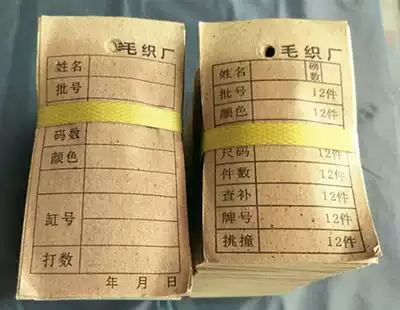 毛织厂
姓名
批号
码数
颜色
缸号
打数
年 月 日
毛织厂
姓名 磅数
批号 12件
颜色 12件
尺码 12件
件数 12件
查补 12件
牌号 12件
挑撞 12件